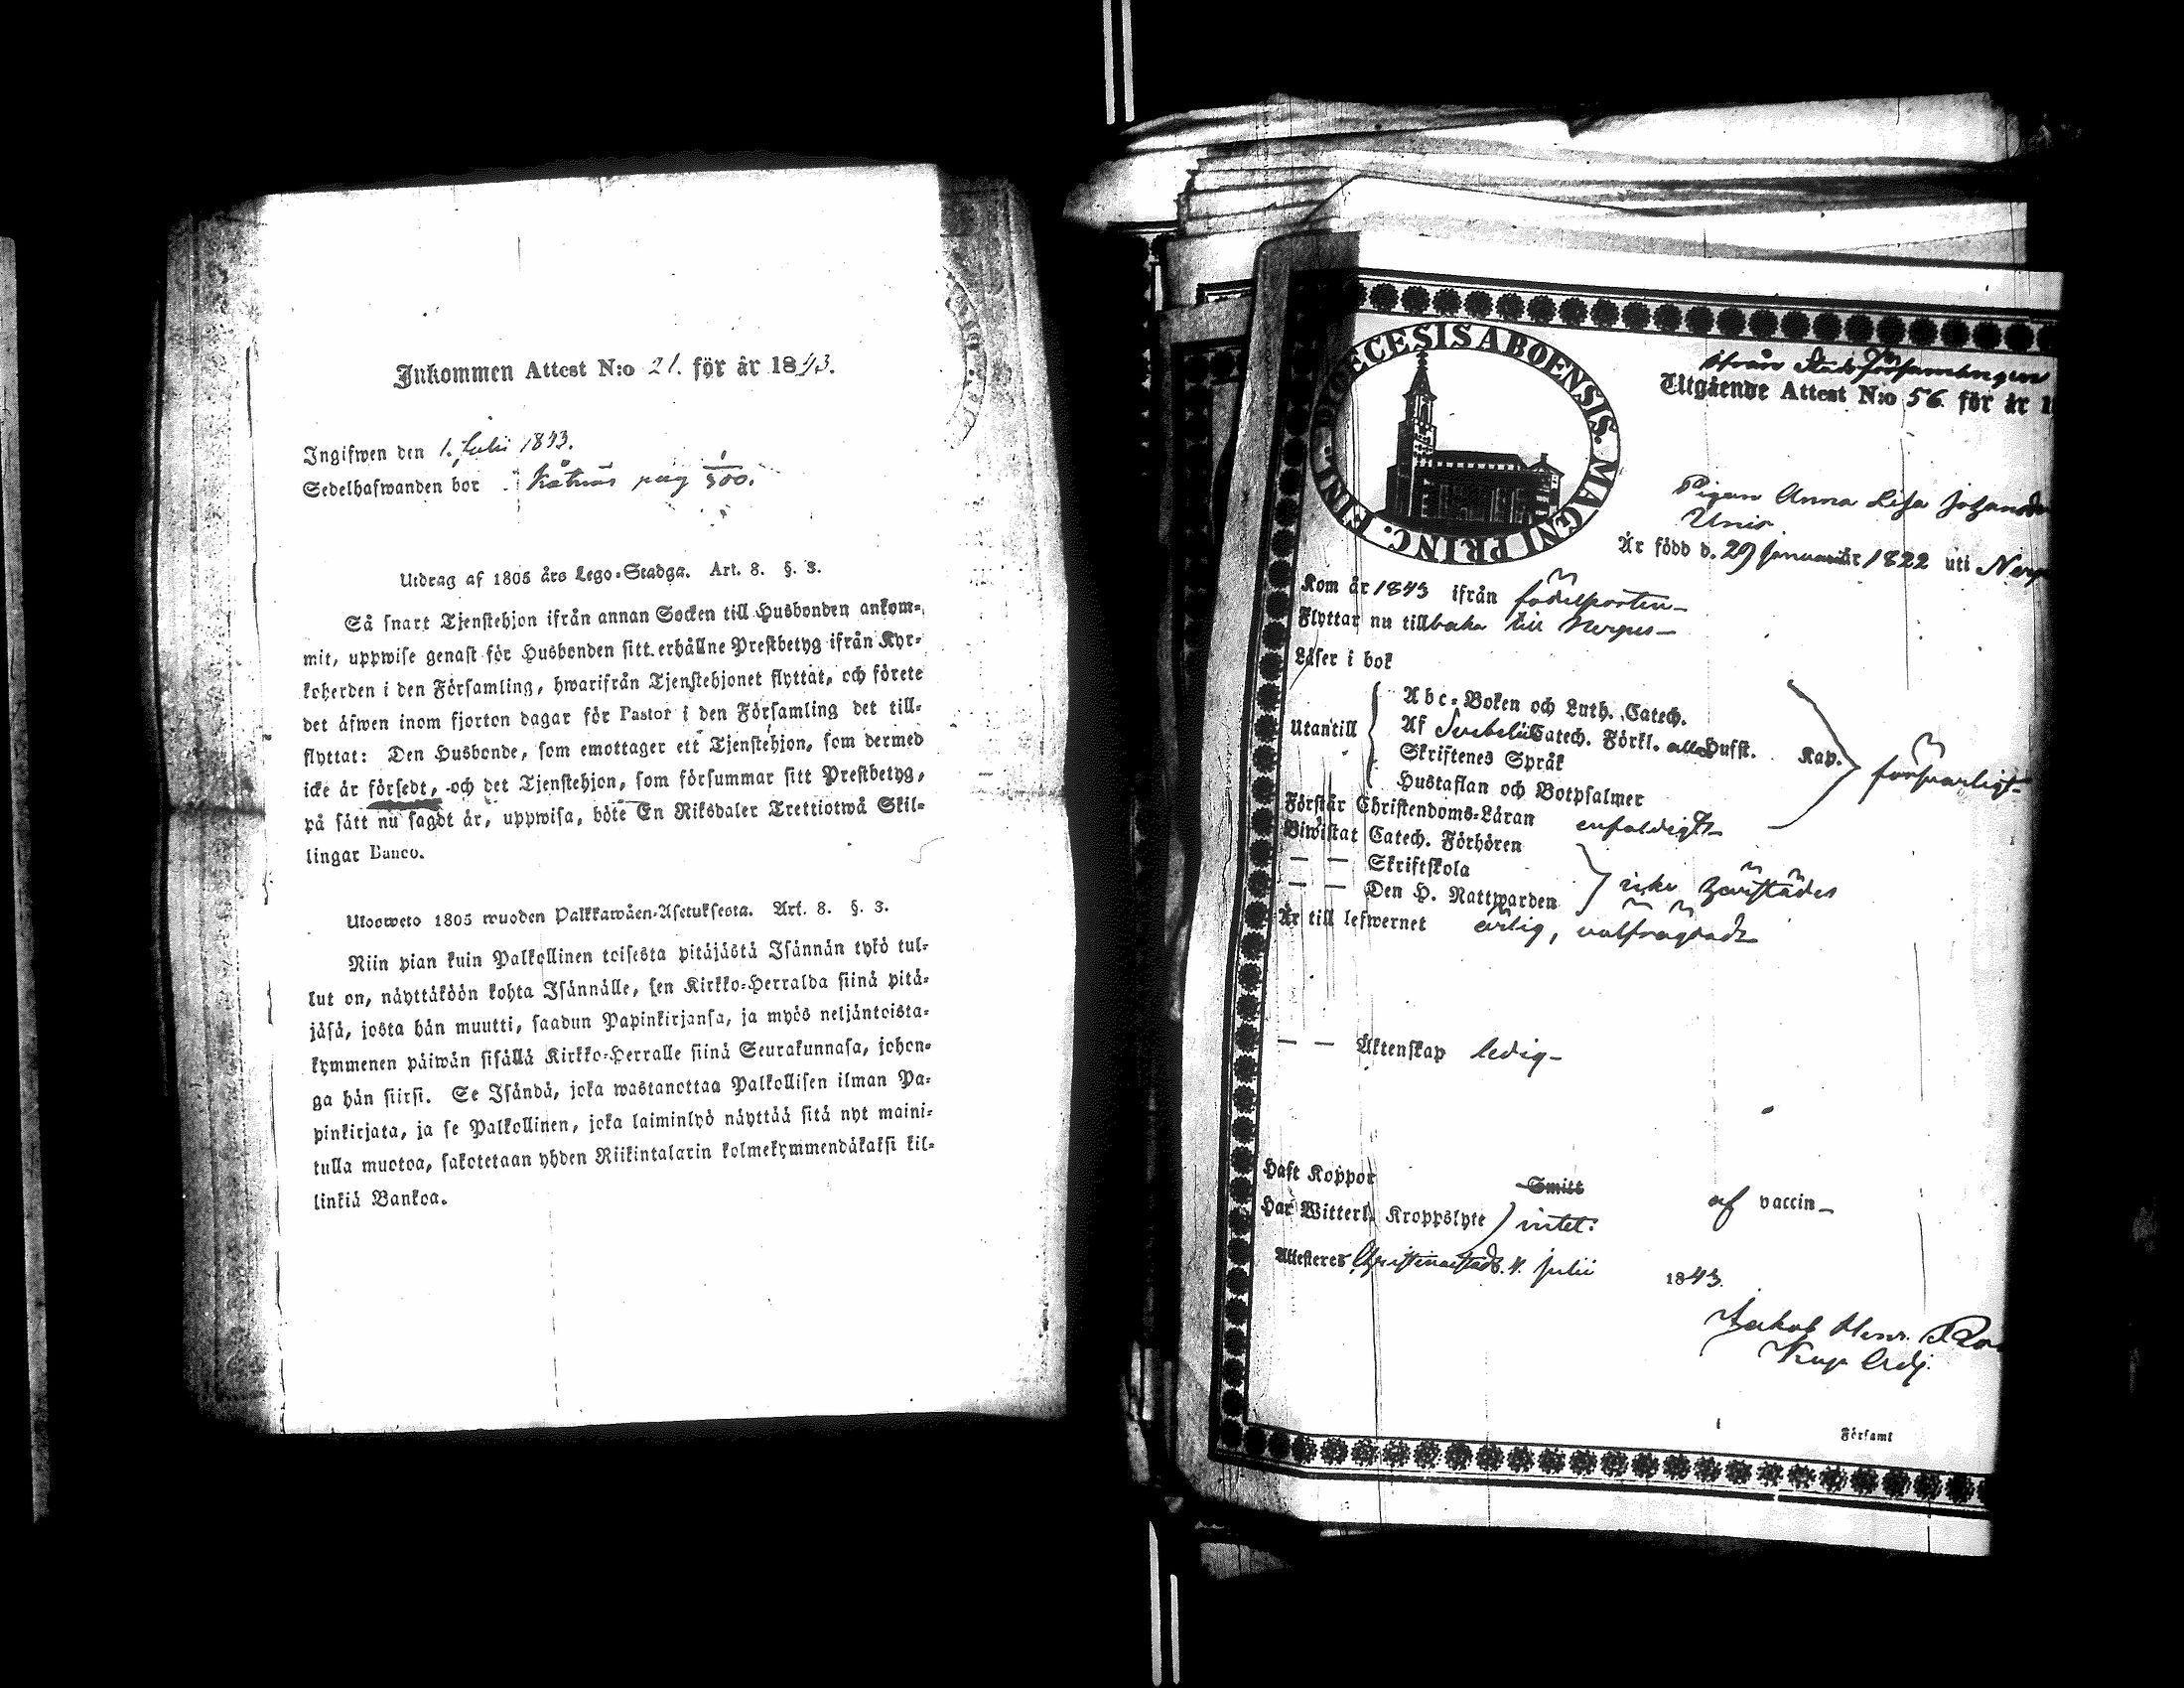 Inkommen Attest N:o 21. för år 1843.
Ingifwen den 1. Julii 1843.
Sedelhafwanden bor Kåtnäs pag 500.
Utdrag af 1805 års Lego-Stadga. Art. 8. §. 3.
Så snart Tjenstehjon ifrån annan Socken till Husbonden ankom-
mit, uppwise genast för Husbonden sitt erhållne Prestbetyg ifrån Kyr-
koherden i den Församling, hwarifrån Tjenstehjonet flyttat, och förete
det äfwen inom fjorton dagar för Pastor i den Församling det till-
flyttat: Den Husbonde, som emottager ett Tjenstehjon, som dermed
icke är försedt, och det Tjenstehjon, som försummar sitt Prestbetyg,
på sätt nu sagdt är, uppwisa, böte En Riksdaler Trettiotwå Skil-
lingar Banco.
Ulosweto 1805 wuoden Palkkawäen-Asetuksesta. Art. 8. §. 3.
Niin pian kuin Palkollinen toisesta pitäjästä Isännän tykö tul-
lut on, näyttäköön kohta Isännälle, sen Kirkko-Herralda siinä pitä-
jäsä, josta hän muutti, saadun Papinkirjansa, ja myös neljäntoista-
kymmenen päiwän sisällä Kirkko-Herralle siinä Seurakunnasa, johon-
ga hän siirsi. Se Isändä, joka wastanottaa Palkollisen ilman Pa-
pinkirjata, ja se Palkollinen, joka laiminlyö näyttää sitä nyt maini-
tulla muotoa, sakotetaan yhden Riikintalarin kolmekymmendäkaksi kil-
linkiä Bankoa.
DIOECESIS ABOENSIS. MAGNI PRINC. FINL.
ifrån Stadsförsamlingen
Utgående Attest N:o 56 för år 1
Pigan Anna Lisa Johansdr
Är född d. 29 Januari år 1822 uti Nerp
Kom år 1843 ifrån födelseorten
Flyttar nu tillbaka till Nerpes
Läser i bok
Utantill
Abc-Boken och Luth. Catech.
Af Svebelii Catech. Förkl. alla Hufst. Kap.
Skriftenes Språk
försvarligt
Hustaflan och Botpsalmer
Förstår Christendoms-Läran enfaldigt
Biwistat Catech. Förhören
— — Skriftskola
— — Den H. Nattwarden
icke härstädes
Är till lefwernet ärlig, välfrägdad
— — Äktenskap ledig
Haft Koppor Smitt af vaccin
Har Witterl. Kroppslyte intet:
Attesteres Christinæstad d. 4. Julii 1843.
Jakob Henr. Ro
Kap. Adj.
Församl